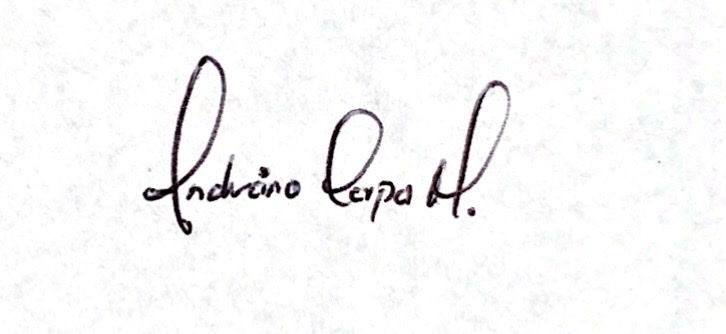 Andreina Carpa M.